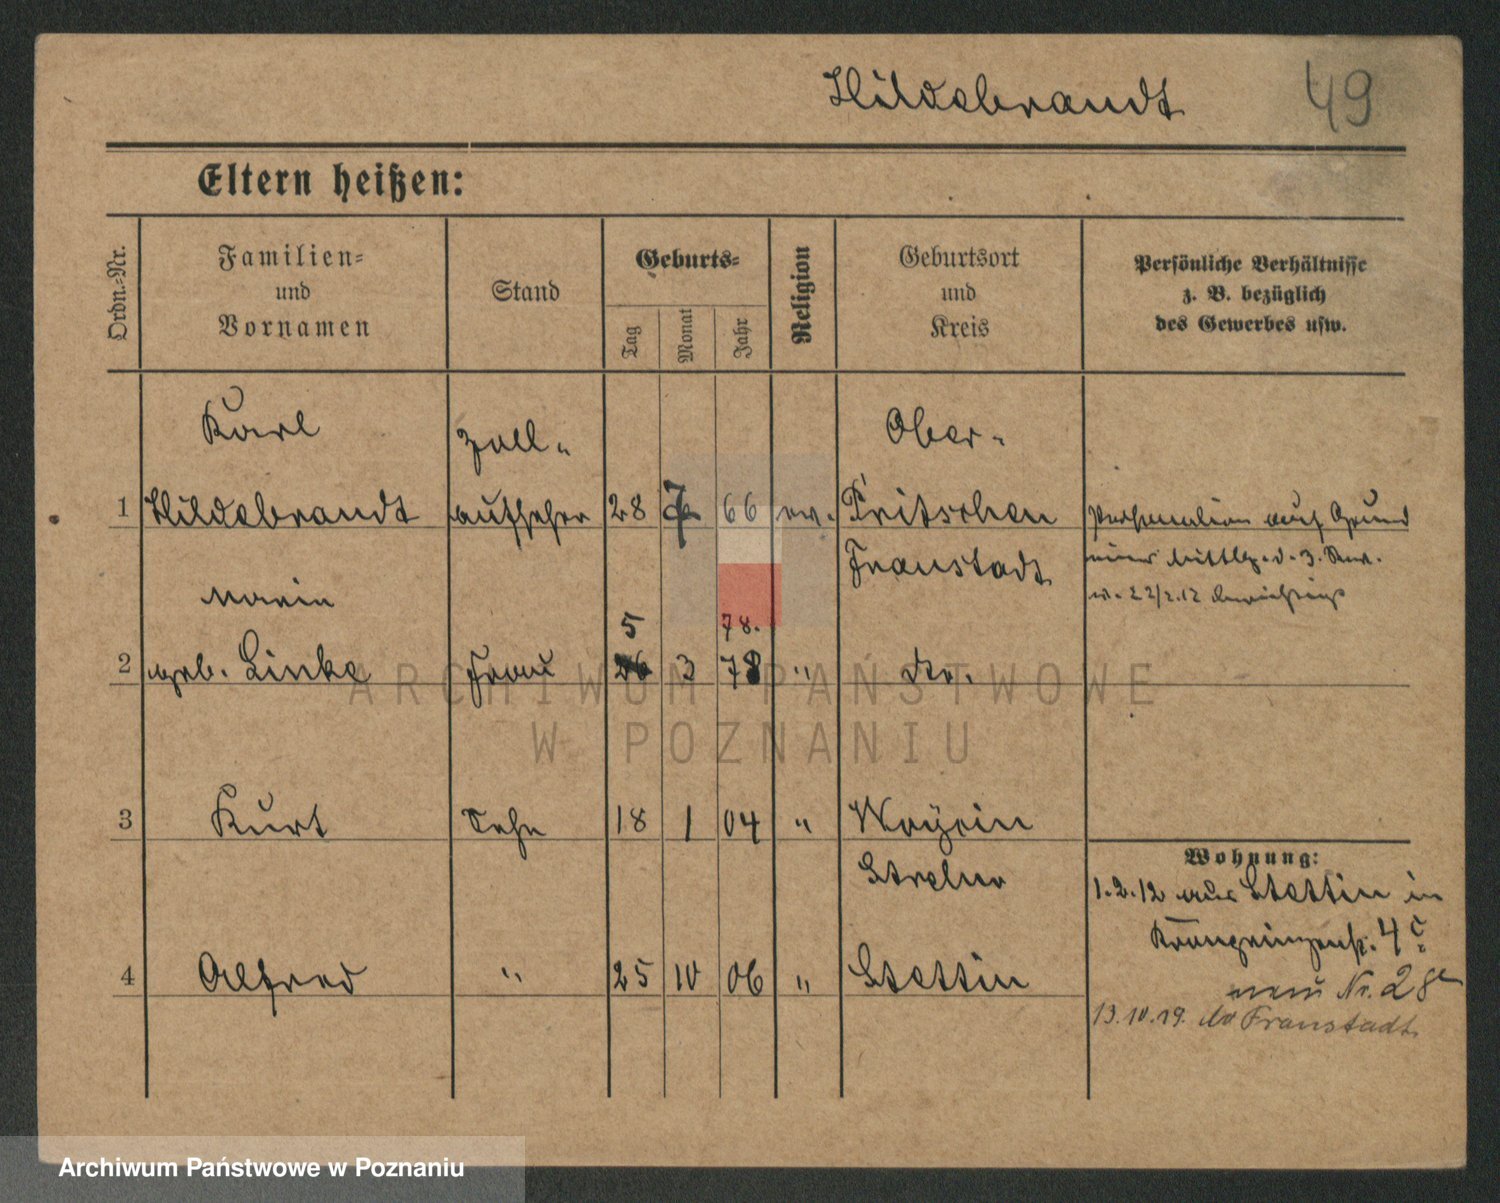 Hildebrandt 49
Eltern heißen:
Ordn.-Nr.
Familien-
und
Vornamen
Stand
Geburts-
Tag
Monat
Jahr
Religion
Geburtsort
und
Kreis
Persönliche Verhältnisse
z. B. bezüglich
des Gewerbes usw.
Karl Zoll- Ober-
1 Hildebrandt aufseher 28 7 66 ev. Pritschen Personalien auf Grund
Fraustadt einer Mittlg. d. 3. Rev.
v. 22/2.12 berichtigt
Marie
5 78.
2 geb. Linke Frau 3 78 " do.
3 Kurt Sohn 18 1 04 "
Wohnung:
Strelno 1.2.12 aus Stettin in
Kronprinzenstr. 4
4 Alfred " 25 10 06 " Stettin neu Nr. 28
13.10.19. Fraustadt
ARCHIWUM PAŃSTWOWE
W POZNANIU
Archiwum Państwowe w Poznaniu